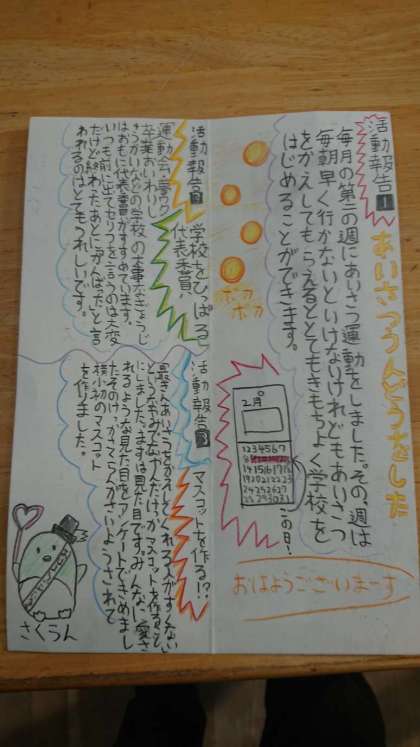 活動報告1
あいさつうんどうをした
毎月の第二の週にあいさつ運動をしました。その週は
毎朝早く行かないといけないけれどもあいさつ
をかえしてもらえるととてもきもちよく学校を
はじめることができます。
ポカ
ポカ
2月
1 2 3 4 5 6 7
この日!
おはようございまーす
活動報告2
学校をひっぱる
代表委員!
運動会、
卒業おいわい
などの学校の
はおもに代表委員がすすめています。
いつも前に出てせりふを言うのは大変
だけど終わったあとに「がんばった」と言
われるのはとてもうれしいです。
活動報告3
マスコットを作る!?
最近あいさつをかえしてくれる人がすくない
にしました。まずは見た目です。みんなに愛さ
れるような見た目をアンケートできめまし
た。そのけっか、さくらんがさいようされて
横小初のマスコット
を作りました。
さくらん